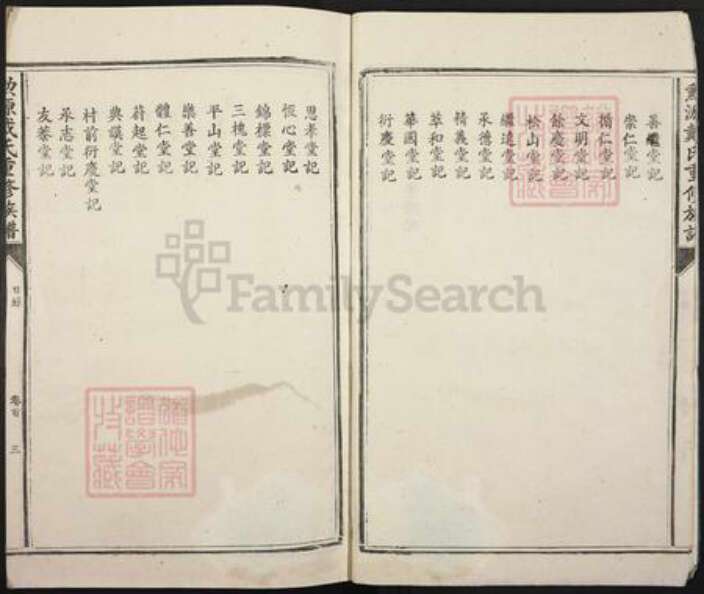 善繼堂記
崇仁堂記
循仁堂記
文明堂記
餘慶堂記
松山堂記
繼遠堂記
承德堂記
精義堂記
萃和堂記
華國堂記
衍慶堂記
思孝堂記
恆心堂記
錦標堂記
三槐堂記
平山堂記
樂善堂記
體仁堂記
蔚起堂記
典謨堂記
村前衍慶堂記
承志堂記
友葵堂記
戴氏重修族譜
目錄
卷首
三
FamilySearch